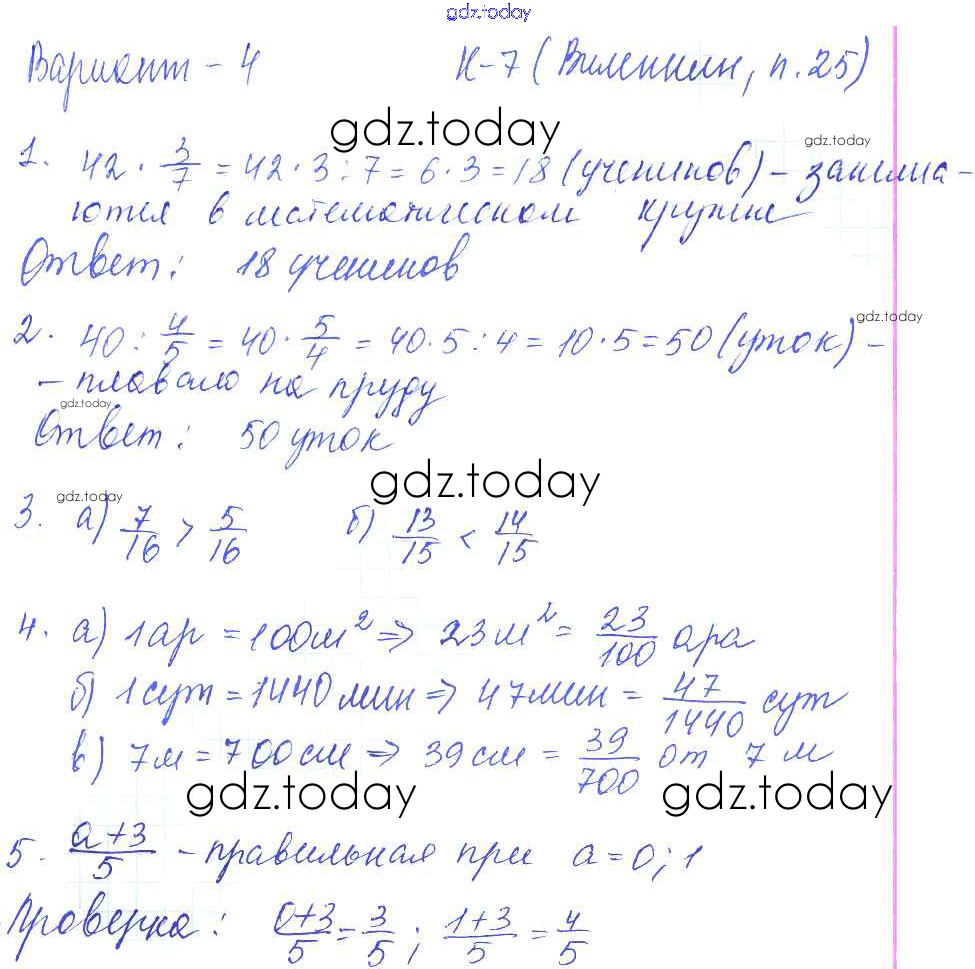 gdz.today
Вариант - 4 К-7 (Виленкин, п.25)
gdz.today
gdz.today
1. 42 · 3/7 = 42 · 3 : 7 = 6 · 3 = 18 (учеников) - занима-
ются в математическом кружке
Ответ: 18 учеников
gdz.today
2. 40 : 4/5 = 40 · 5/4 = 40 · 5 : 4 = 10 · 5 = 50 (уток) -
- плавало на пруду
gdz.today
Ответ: 50 уток
gdz.today
gdz.today
3. а) 7/16 > 5/16 б) 13/15 < 14/15
4. а) 1 ар = 100 м² ⇒ 23 м² = 23/100 ара
б) 1 сут = 1440 мин ⇒ 47 мин = 47/1440 сут
в) 7 м = 700 см ⇒ 39 см = 39/700 от 7 м
gdz.today gdz.today
5. a+3/5 - правильная при a = 0; 1
Проверка: 0+3/5 = 3/5; 1+3/5 = 4/5